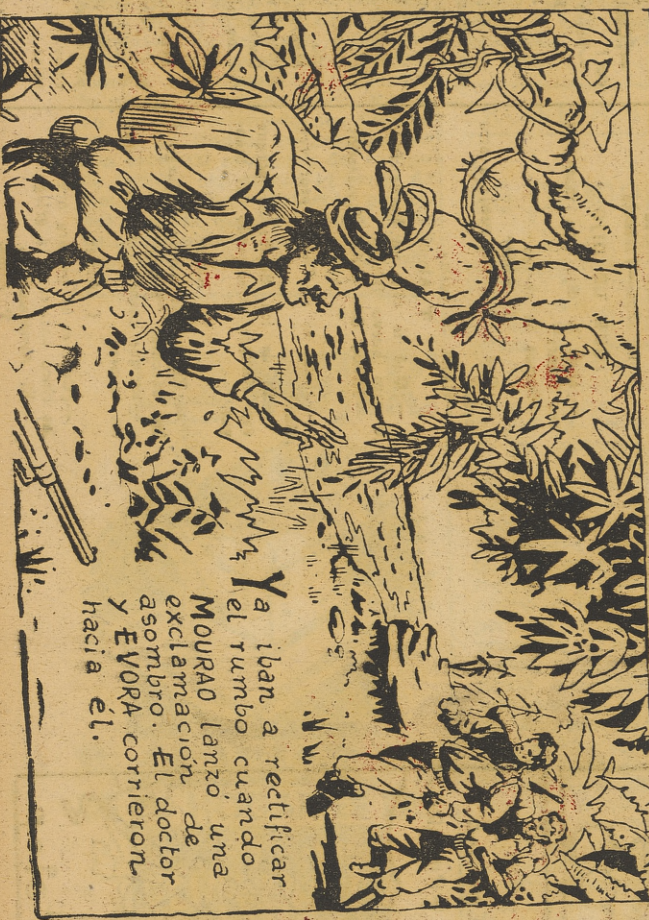 Ya iban a rectificar
el rumbo cuando
MOURAO lanzó una
exclamación de
asombro. El doctor
y EVORA corrieron
hacia él.